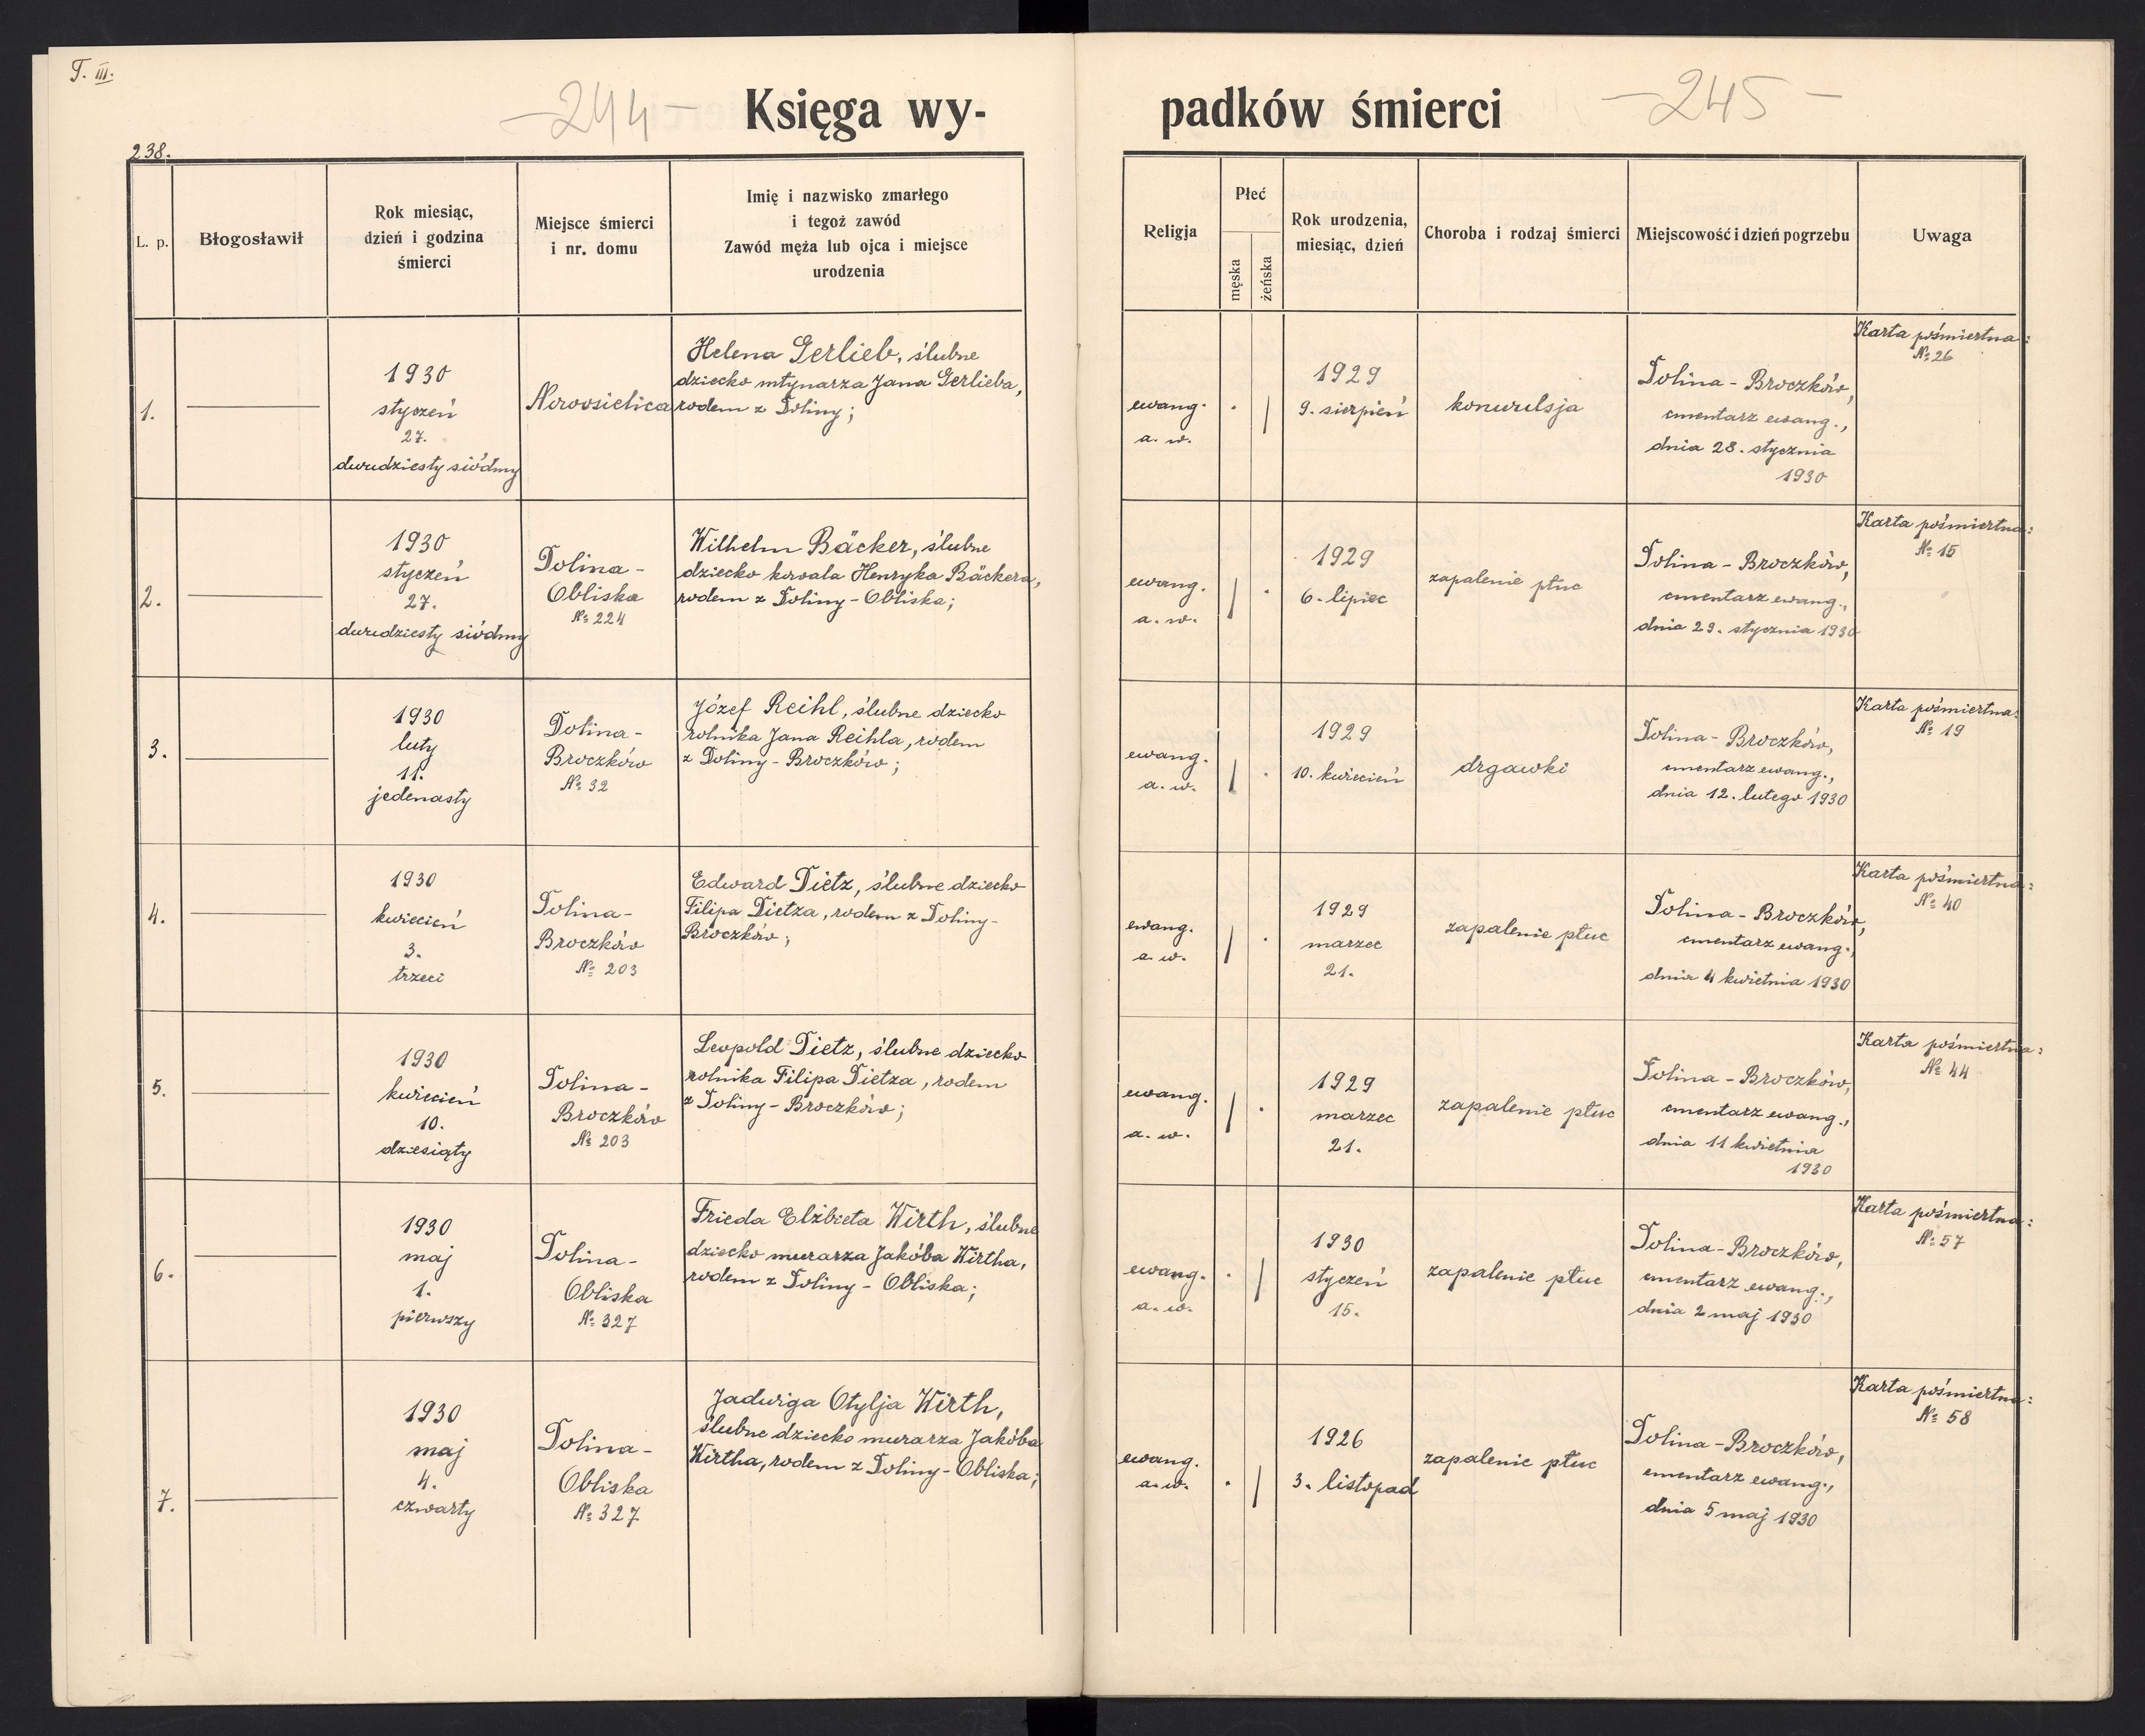 T. III.
-244-
Księga wy-
padków śmierci
-245-
238.
L. p.
Błogosławił
Rok miesiąc,
dzień i godzina
śmierci
Miejsce śmierci
i nr. domu
Imię i nazwisko zmarłego
i tegoż zawód
Zawód męża lub ojca i miejsce
urodzenia
Religja
Płeć
męska
żeńska
Rok urodzenia,
miesiąc, dzień
Choroba i rodzaj śmierci
Miejscowość i dzień pogrzebu
Uwaga
1.
1930
styczeń
27.
dwudziesty siódmy
Nowosielica
Helena Gerlieb, ślubne
dziecko młynarza Jana Gerlieba,
rodem z Doliny;
ewang.
a. w.
1929
9. sierpień
konwulsja
Dolina - Broczków,
cmentarz ewang.,
dnia 28. stycznia
1930
Karta pośmiertna:
№ 26
2.
1930
styczeń
27.
dwudziesty siódmy
Dolina -
Obliska
№ 224
Wilhelm Bäcker, ślubne
dziecko kowala Henryka Bäckera,
rodem z Doliny - Obliska;
ewang.
a. w.
1929
6. lipiec
zapalenie płuc
Dolina - Broczków,
cmentarz ewang.,
dnia 29. stycznia 1930
Karta pośmiertna:
№ 15
3.
1930
luty
11.
jedenasty
Dolina -
Broczków
№ 32
Józef Reihl, ślubne dziecko
rolnika Jana Reihla, rodem
z Doliny - Broczków;
ewang.
a. w.
1929
10. kwiecień
drgawki
Dolina - Broczków,
cmentarz ewang.,
dnia 12. lutego 1930
Karta pośmiertna:
№ 19
4.
1930
kwiecień
3.
trzeci
Dolina -
Broczków
№ 203
Edward Dietz, ślubne dziecko
Filipa Dietza, rodem z Doliny-
Broczków;
ewang.
a. w.
1929
marzec
21.
zapalenie płuc
Dolina - Broczków,
cmentarz ewang.,
dnia 4 kwietnia 1930
Karta pośmiertna:
№ 40
5.
1930
kwiecień
10.
dziesiąty
Dolina -
Broczków
№ 203
Leopold Dietz, ślubne dziecko
rolnika Filipa Dietza, rodem
z Doliny - Broczków;
ewang.
a. w.
1929
marzec
21.
zapalenie płuc
Dolina - Broczków,
cmentarz ewang.,
dnia 11 kwietnia
1930
Karta pośmiertna:
№ 44
6.
1930
maj
1.
pierwszy
Dolina -
Obliska
№ 327
Frieda Elżbieta Wirth, ślubne
dziecko murarza Jakóba Wirtha,
rodem z Doliny - Obliska;
ewang.
a. w.
1930
styczeń
15.
zapalenie płuc
Dolina - Broczków,
cmentarz ewang.,
dnia 2 maj 1930
Karta pośmiertna:
№ 57
7.
1930
maj
4.
czwarty
Dolina -
Obliska
№ 327
Jadwiga Otylja Wirth,
ślubne dziecko murarza Jakóba
Wirtha, rodem z Doliny - Obliska;
ewang.
a. w.
1926
3. listopad
zapalenie płuc
Dolina - Broczków,
cmentarz ewang.,
dnia 5 maj 1930
Karta pośmiertna:
№ 58